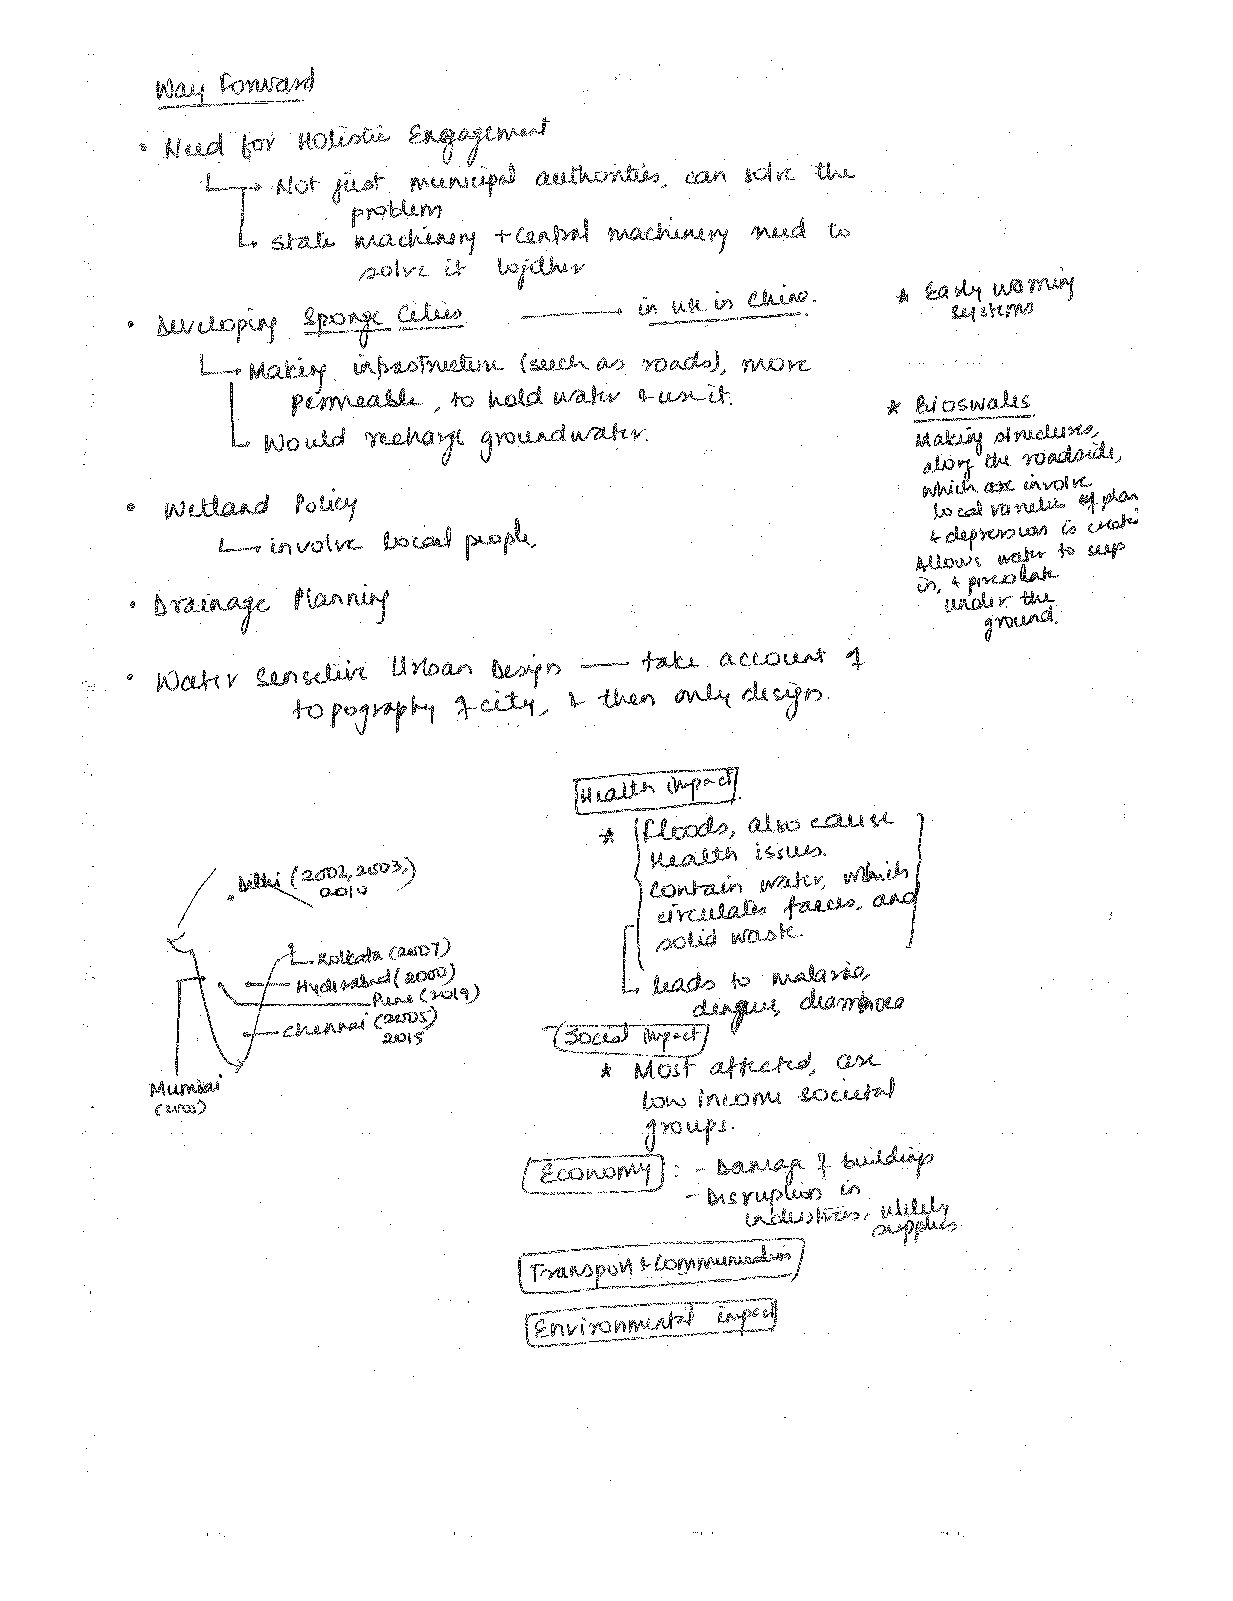 Way Forward
• Need for Holistic Engagement
→ Not just municipal authorities, can solve the
problem
→ State machinery + central machinery need to
solve it together
• Developing Sponge Cities — in use in China.
→ Making infrastructure (such as roads), more
permeable, to hold water & use it.
→ Would recharge groundwater.
• Wetland Policy
→ involve local people,
• Drainage Planning
• Water Sensitive Urban Design — take account of
topography of city, & then only design.
* Early warning
systems
* Bioswales
Making structures,
along the roadside,
which are involve
local varieties of plan
& depression is create
Allows water to seep
in, & percolate
under the
ground.
Delhi (2002, 2003,
2010
Kolkata (2007)
Hyderabad (2000)
Pune (2019)
Chennai (2005)
2015
Mumbai
(2005)
Health impact
* Floods, also cause
Health issues.
contain water, which
circulates faeces, and
solid waste.
leads to malaria,
dengue, diarrhoea
Social impact
* Most affected, are
low income societal
groups.
Economy : - Damage of buildings
- Disruption in
industries, utility
supplies
Transport & Communication
Environmental impact